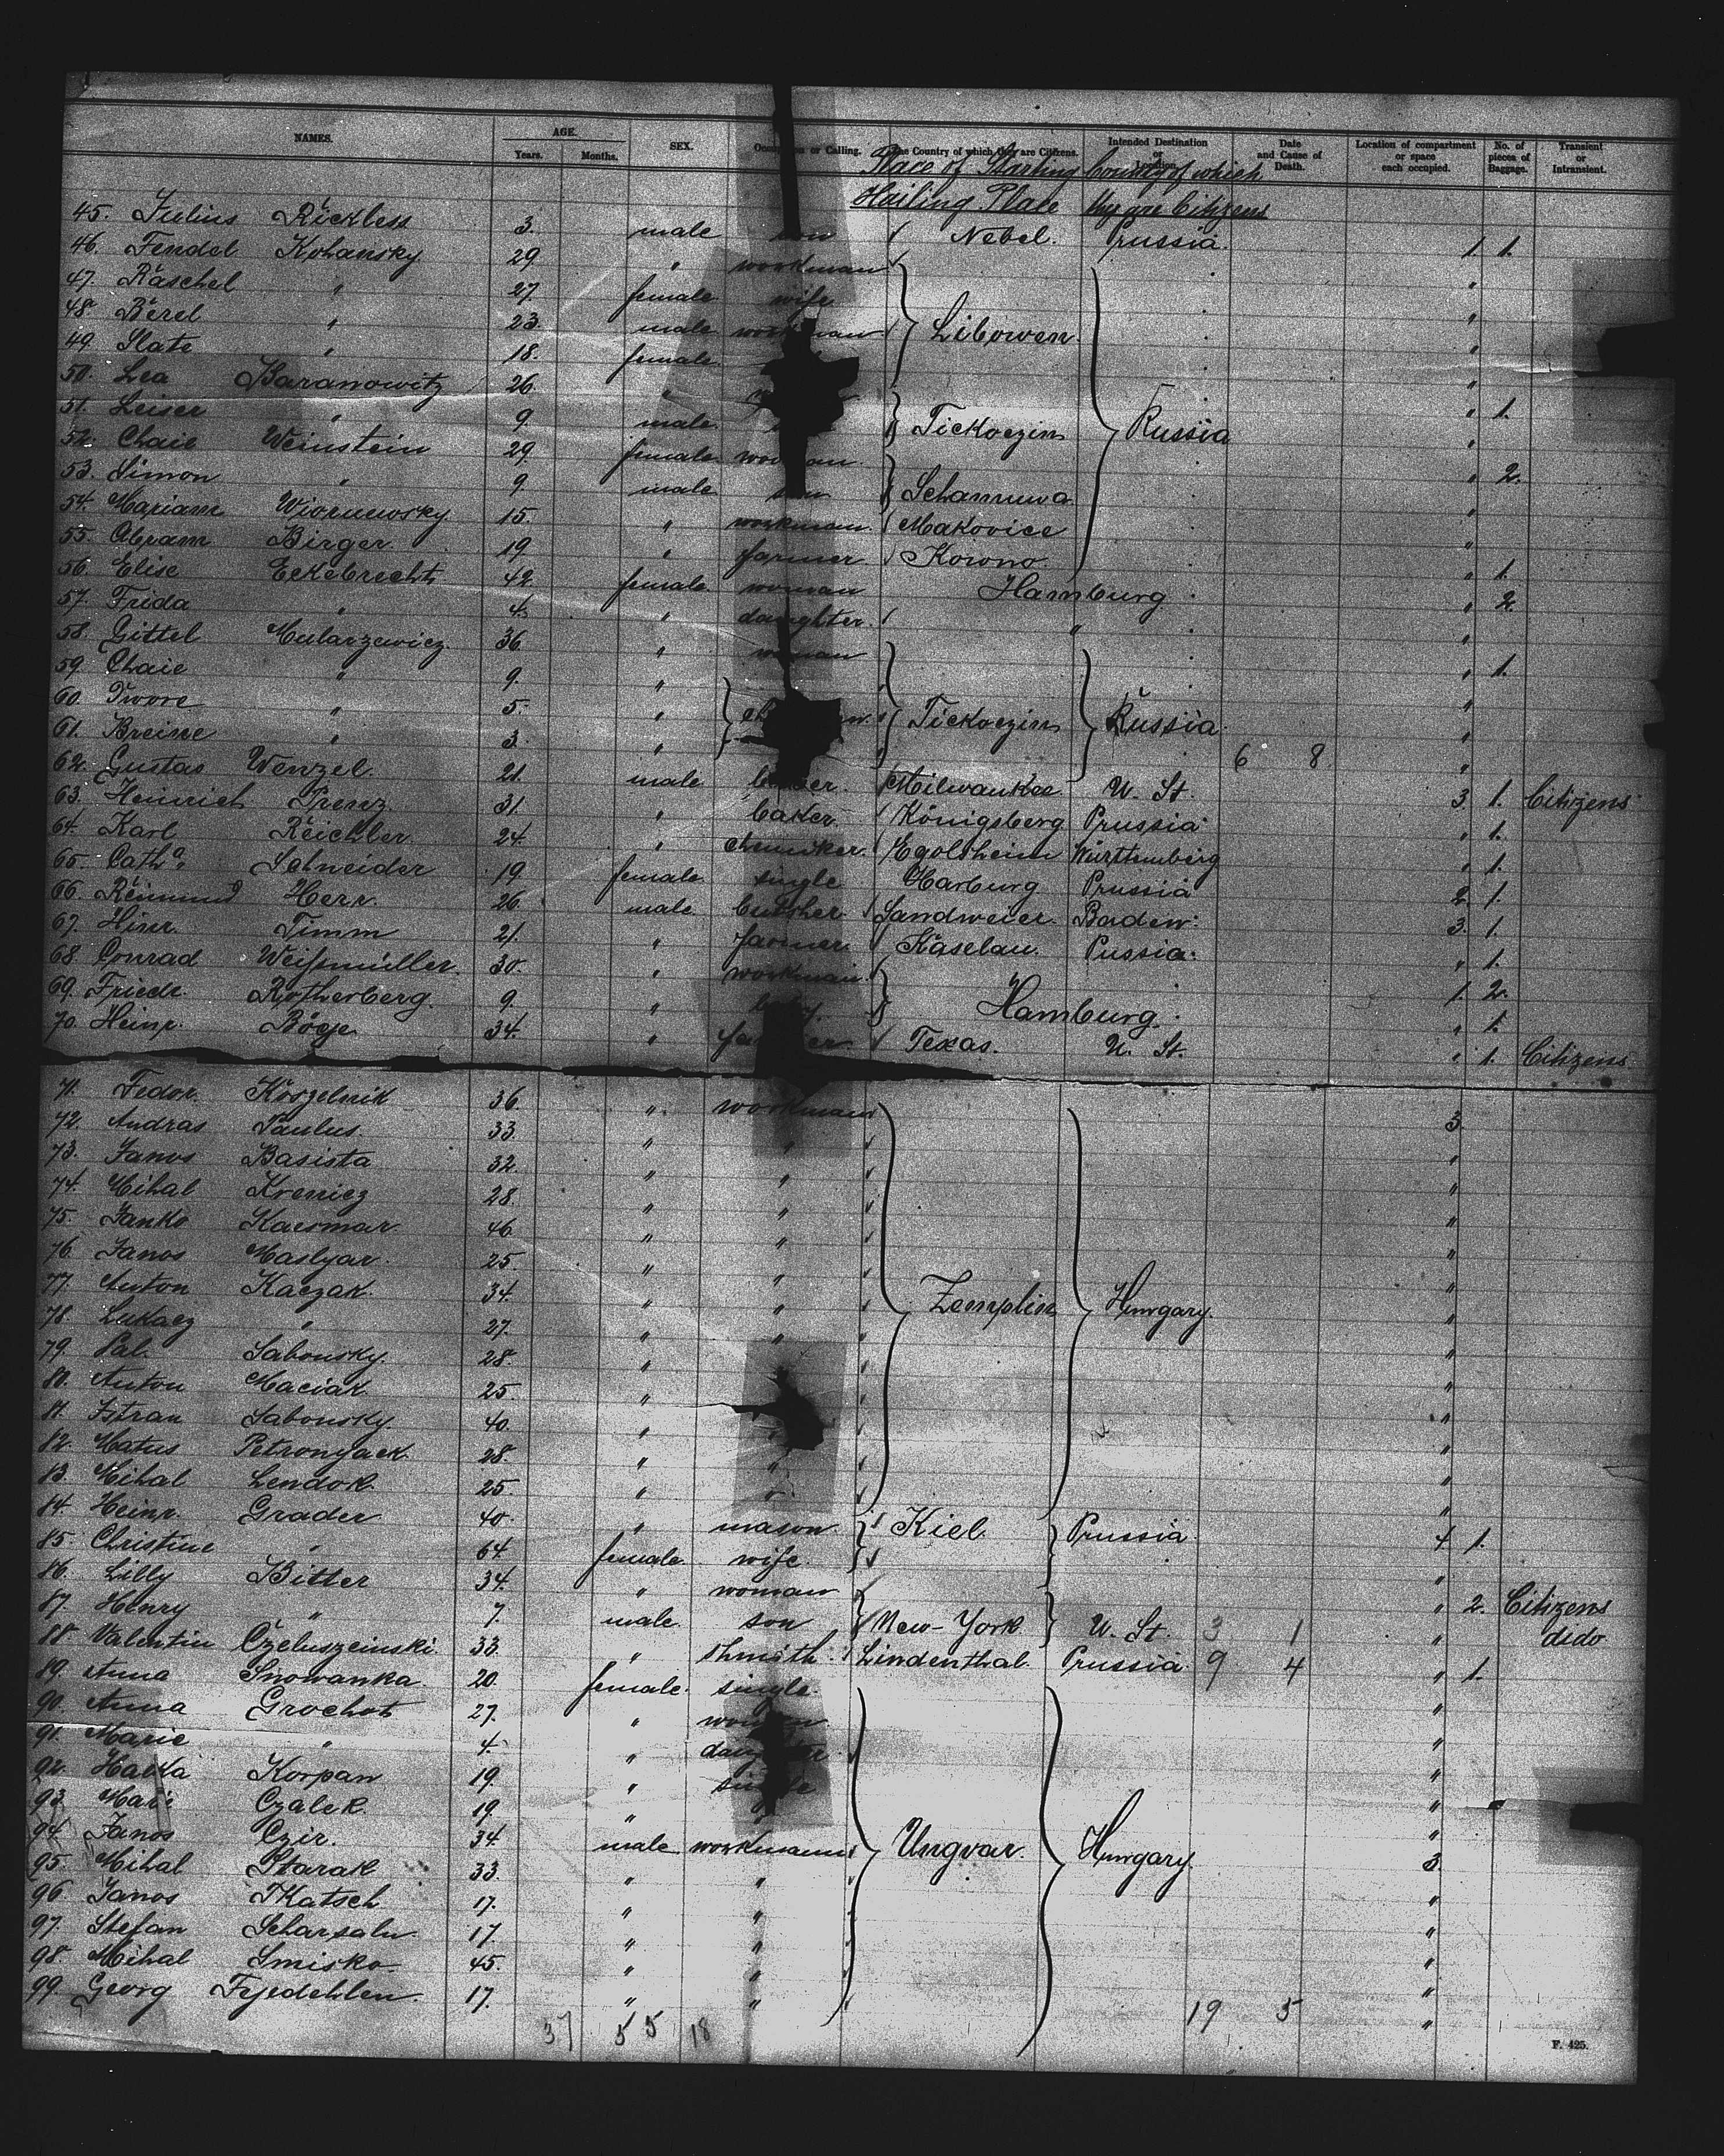 NAMES. AGE. Years. Months. SEX. or Calling. The Country of which they are Citizens. Intended Destination or Location. Date and Cause of Death. Location of compartment or space each occupied. No. of pieces of Baggage. Transient or Intransient.
Place of Starting Country of which
Hailing Place they are Citizens
45. Julius Rickless 3. male son Nebel. Prussia. 1. 1.
46. Fendel Kohansky 29. " workman
47. Raschel " 27. female wife "
48. Berel " 23. male workman Libowen. "
49. Slate " 18. female "
50. Lea Baranowitz 26. " "
51. Leiser " 9. male Tickoczin Russia " 1.
52. Chaie Weinstein 29. female woman. "
53. Simon " 9. male son Schamuwa " 2.
54. Mariam 15. " workman. Makovice "
55. Abram Birger. 19. " farmer Kowno "
56. Elise Eckebrecht 42. female woman Hamburg " 1.
57. Frida " 4. " daughter. " " 2.
58. Gittel Mularzewicz. 36. " woman "
59. Chaie " 9. " " 1.
60. Dwore " 5. " Tickoczin Russia. "
61. Breine " 3. " 6 8 "
62. Gustas Wenzel. 21. male Milwaukee. U. St. "
63. Heinrich Prenz. 31. " baker. Königsberg Prussia 3. 1. Citizens
64. Karl Reichler. 24. " chemiker. Egolsheim Württemberg " 1.
65. Cath. Schneider 19. female single Harburg Prussia " 1.
66. Reimund Herr. 26. male. butsher Sandweier. Baden. 2. 1.
67. Hinr. Timm 21. " farmer Käselau. Pussia. 3. 1.
68. Conrad Weißmüller. 30. " workman. " 1.
69. Friedr. Rotherberg. 9. " Hamburg. 1. 2.
70. Heinr. Böge 34. " Texas. U. St. " 1.
" 1. Citizens
71. Fedor. Koszelnik 36. " workman
72. Andras Paulus. 33. " " 3.
73. Janos Basista 32. " " "
74. Mihal Krenicz 28. " " "
75. Janko Kacsmar 46. " " "
76. Janos Maslyar. 25. " " "
77. Anton Kaczak. 34. " " Zemplin Hungary. "
78. Lukacz " 27. " " "
79. Pal. Sabonsky. 28. " "
80. Anton Maciak 25. " "
81. Istvan Sabonsky. 40. " " "
82. Matus Petronyack. 28. " " "
83. Mihal Lendok. 25. " " "
84. Heinr. Grader 40. " mason Kiel. Prussia "
85. Christine " 64. female. wife. 4. 1.
86. Lilly Bitter 34. " woman "
87. Henry " 7. male. son New-York U. St. 3 1 " 2. Citizens
88. Valentin 33. " Shmith. Lindenthal. Prussia 9 4 " dido
89. Anna Snowanka. 20. female. single. " 1.
90. Anna Grochot 27. " woman. "
91. Marie " 4. " daughter. "
92. Korpan 19. " single "
93. Mari Czalek. 19. " "
94. Janos Czir. 34. male workmann Ungvar. Hungary. "
95. Mihal Starak 33. " " 3.
96. Janos Tkatsch 17. " " "
97. Stefan 17. " " "
98. Mihal Smisko. 45. " " "
99. Georg 17. " " 19 5 "
37 55 18
F. 425.